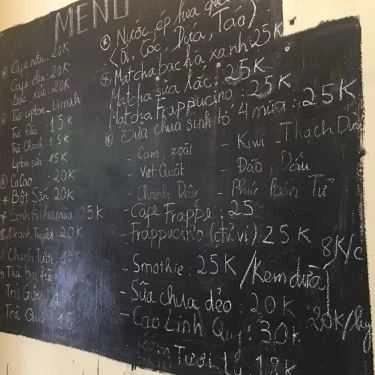 MENU
Cafe nâu 20K
Cafe đen 20K
Bạc xỉu 20K
Trà lipton - Lipton
Trà Đào 15K
Trà Chanh 15K
Lipton sữa 15K
CaCao - 20K
+ Bột Sắn 20K
+ Sinh tố 4 mùa 25K
Chanh Tuyết 20K
Chanh Tươi 15K
Trà
Trà Gừng
Trà Quất 15
Nước ép hoa quả
(Ổi, Cóc, Dứa, Táo)
Matcha đá xay xanh 25K
Matcha sữa lắc: 25K
Matcha Frappucino: 25K
Sữa chua sinh tố 4 mùa: 25K
- Cam, xoài
- Kiwi - Thạch Dừa
- Việt Quất
- Đào, Dâu
- Chanh Dây
- Phúc Bồn Tử
- Cafe Frappe: 25
- Frappucino (chỉ vị) 25K
- Smothie: 25K /Kem dừa
8K/c
- Sữa chua dẻo: 20K
20K/
- Cao Linh Quy: 30K
Tươi Ly 18K